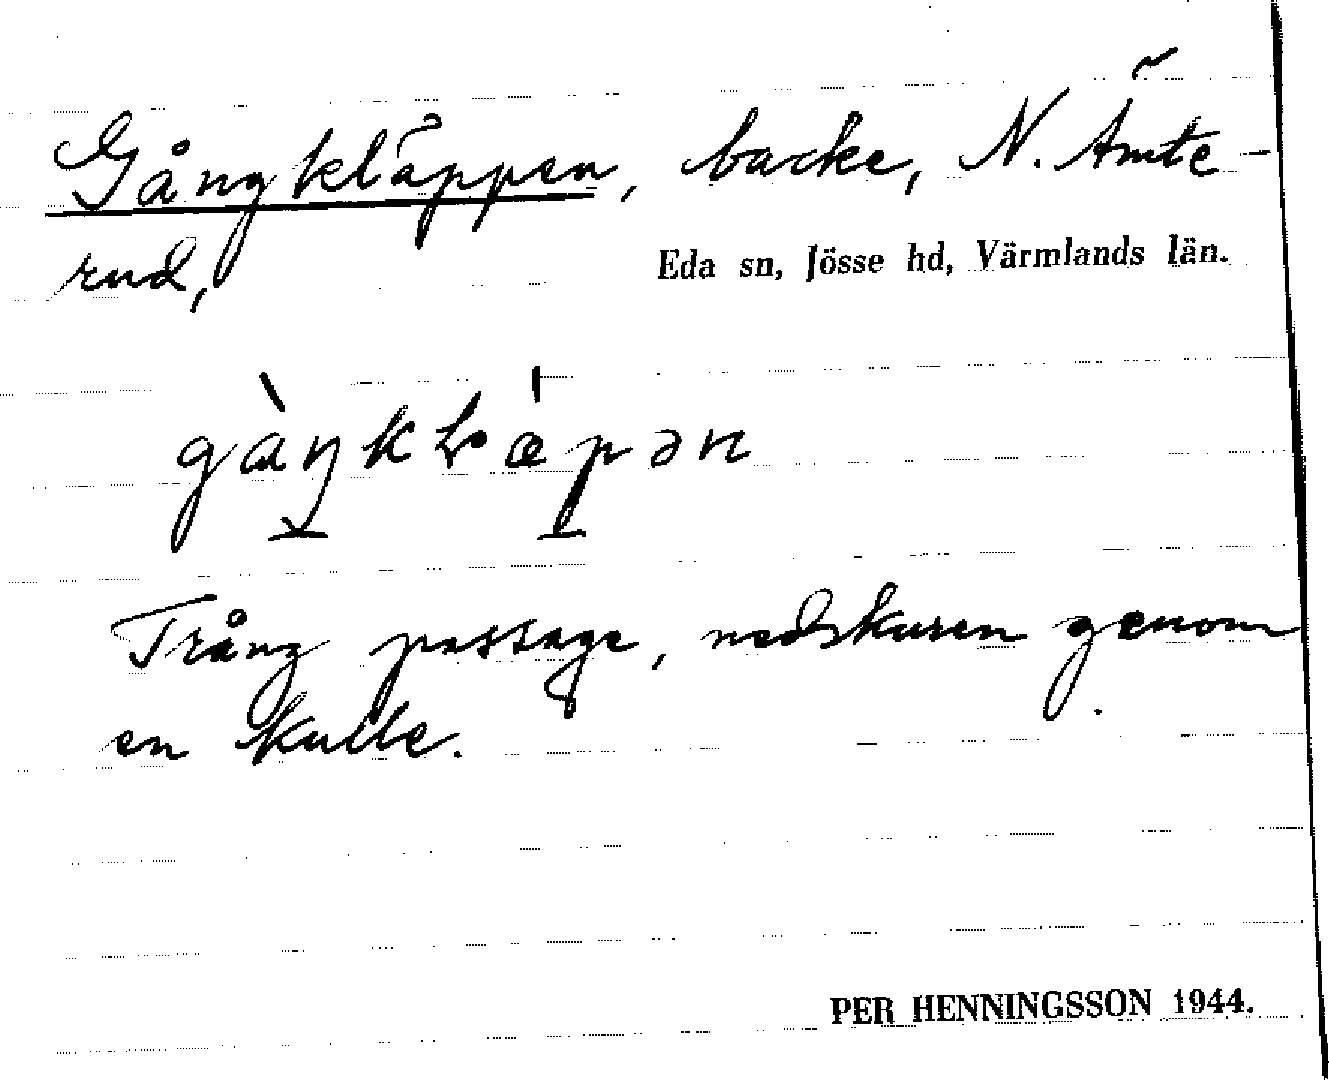 Gångkläppen, backe, N. Ämte-
rud,
Eda sn, Jösse hd, Värmlands län.
Trång passage, nedskuren genom
en kulle.
PER HENNINGSSON 1944.